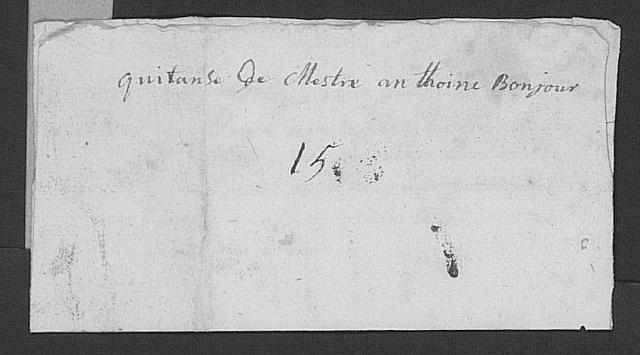 quitanse De Mestre an thoine Bonjour
15